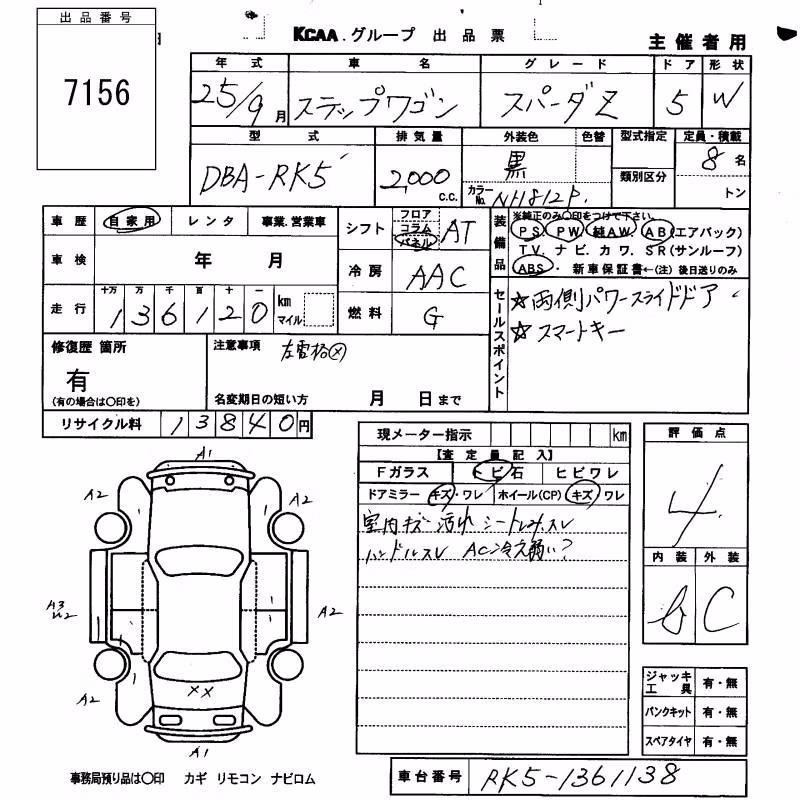 出品番号
7156
KCAA.グループ 出品票
主催者用
年式 車名 グレード ドア 形状
25/9月 ステップワゴン スパーダZ 5 W
型式 排気量 外装色 色替 型式指定 定員・積載
DBA-RK5 2,000 c.c. 黒 類別区分 8名
カラーNo. NH812P. トン
車歴 自家用 レンタ 事業.営業車
シフト フロア コラム パネル AT
装備品 ※純正のみ○印をつけて下さい。
PS PW 純AW. AB(エアバック)
TV. ナビ. カワ. SR(サンルーフ)
ABS. 新車保証書←(注) 後日送りのみ
車検 年 月
冷房 AAC
走行 十万 万 千 百 十 一 km マイル
136120
燃料 G
セールスポイント
☆両側パワースライドドア
☆スマートキー
修復歴 箇所
有
(有の場合は○印を)
注意事項
名変期日の短い方 月 日まで
リサイクル料 13840円
現メーター指示 km
【査定員記入】
Fガラス トビ石 ヒビワレ
ドアミラー キズ・ワレ ホイール(CP) キズ ワレ
室内キズ 汚れ シートしみスレ
ハンドルスレ AC冷え弱い?
評価点
4
内装 外装
b C
A1
A2 A2
A3
A2
A2 A2
××
A1
ジャッキ工具 有・無
パンクキット 有・無
スペアタイヤ 有・無
事務局預り品は○印 カギ リモコン ナビロム
車台番号 RK5-1361138